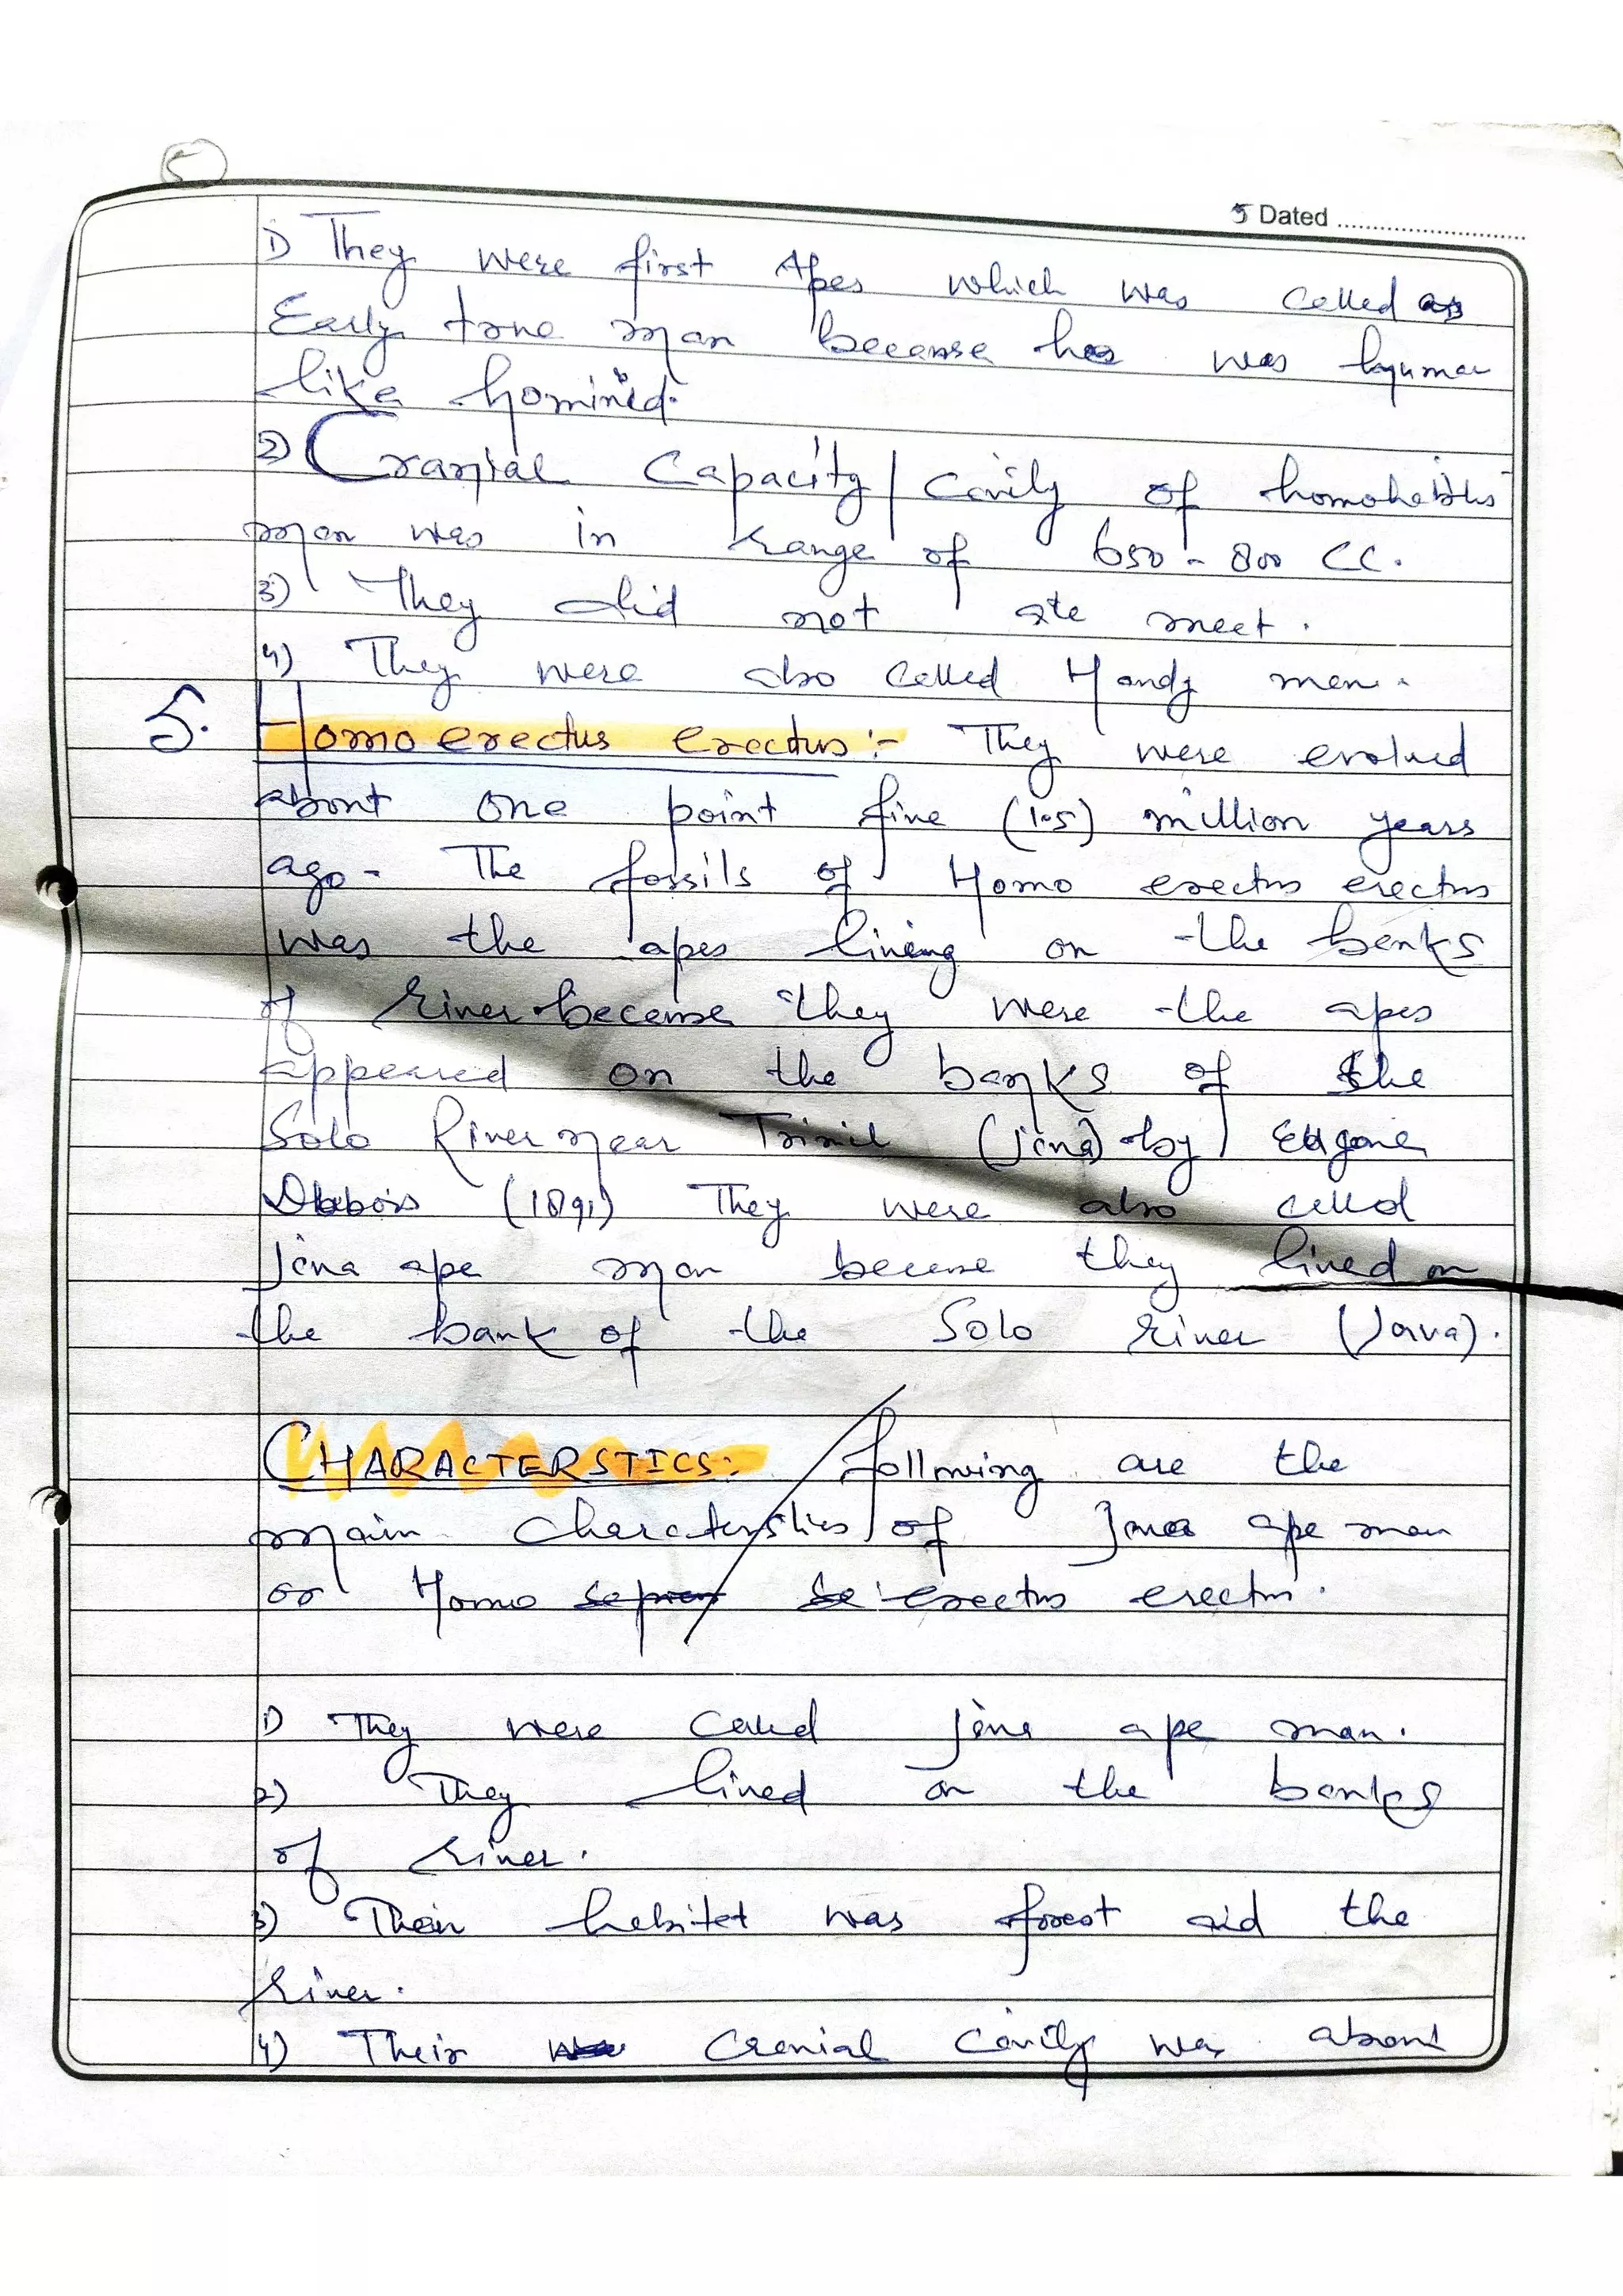 5
5 Dated
1) They were first Apes which was called as
Early true man because he was hyuman
like hominid.
2) Cranial Capacity/Cavily of homohabilus
man was in range of 650-800 CC.
3) They did not ate meet.
4) They were also called Handy man.
5. Homo erectus erectus:- They were evolved
about one point five (1.5) million years
ago. The fossils of Homo erectus erectus
was the apes living on the banks
of river because they were the apes
appeared on the banks of the
Solo River near Trinil (java) by Eugene
Dubbois (1891) They were also called
java ape man because they lived on
the bank of the Solo river (Java).
CHARACTERSTICS: following are the
main charcterstics of Java ape man
or Homo erectus erectus.
1) They were called java ape man.
2) They lived on the banks
of river.
3) Their habitat was forest aid the
river.
4) Their Cranial Cavity was about